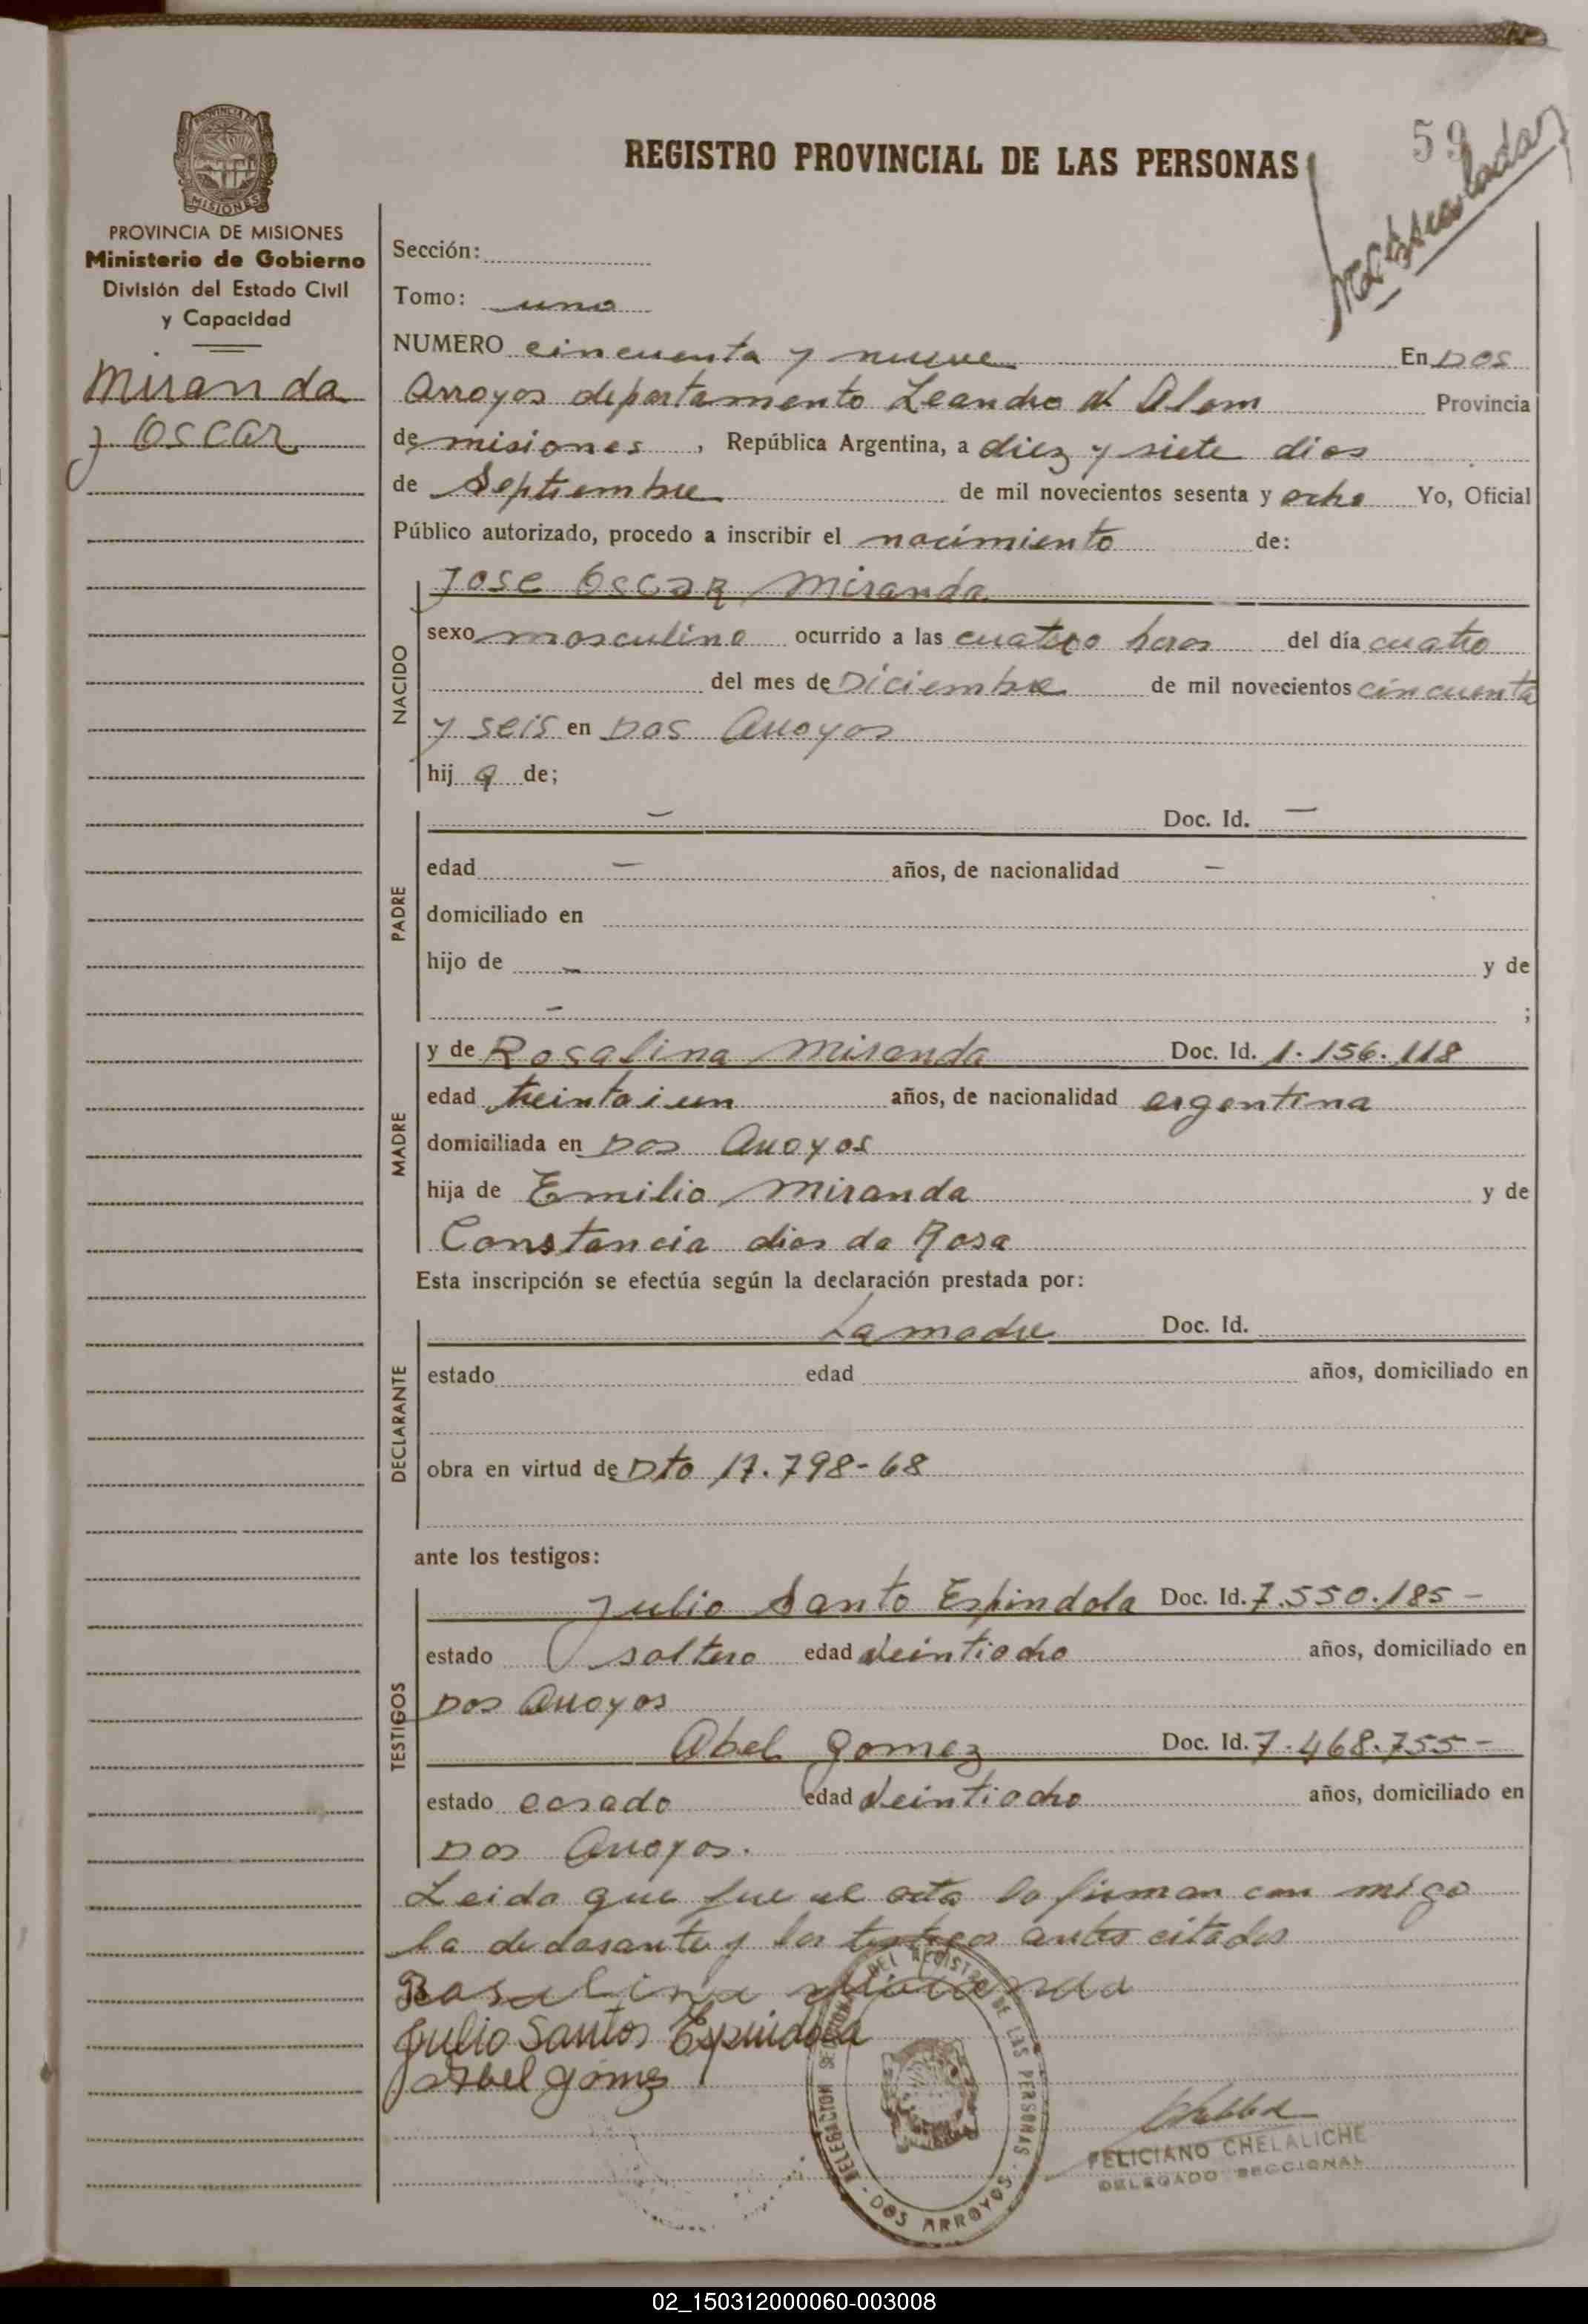 59
REGISTRO PROVINCIAL DE LAS PERSONAS
PROVINCIA DE MISIONES
Ministerio de Gobierno
División del Estado Civil
y Capacidad
Miranda
J Oscar
Sección:
Tomo: uno
NUMERO cincuenta y nueve En Dos
Arroyos departamento Leandro N Alem Provincia
de misiones, República Argentina, a diez y siete dias
de Septiembre de mil novecientos sesenta y ocho Yo, Oficial
Público autorizado, procedo a inscribir el nacimiento de:
Jose Oscar Miranda
NACIDO
sexo masculino ocurrido a las cuatro horas del día cuatro
del mes de Diciembre de mil novecientos cincuenta
y seis en Dos Arroyos
hij o de;
PADRE
— Doc. Id. —
edad — años, de nacionalidad —
domiciliado en
hijo de — y de
— ;
MADRE
y de Rosalina Miranda Doc. Id. 1.156.118
edad treintaiun años, de nacionalidad argentina
domiciliada en Dos Arroyos
hija de Emilio Miranda y de
Constancia dias da Rosa
Esta inscripción se efectúa según la declaración prestada por:
DECLARANTE
La madre Doc. Id.
estado edad años, domiciliado en
obra en virtud de Dto 17.798-68
ante los testigos:
TESTIGOS
Julio Santo Espindola Doc. Id. 7.550.185 -
estado soltero edad veintiocho años, domiciliado en
Dos Arroyos
Abel Gomez Doc. Id. 7.468.755 -
estado casado edad veintiocho años, domiciliado en
Dos Arroyos.
Leida que fue el acta la firman con migo
la declarante y los testigos antes citados
Rosalina Miranda
Julio Santos Espindola
Abel gomez
DELEGACION SECCIONAL DEL REGISTRO DE LAS PERSONAS - DOS ARROYOS
FELICIANO CHELALICHE
DELEGADO SECCIONAL
02_150312000060-003008